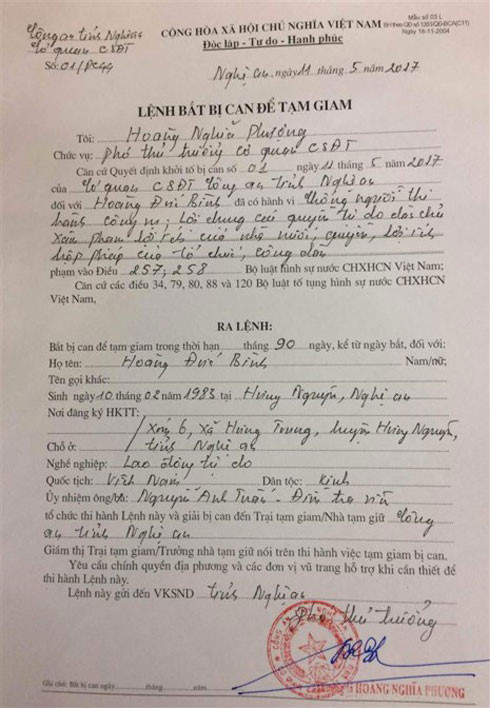 Công an tỉnh Nghệ an
Cơ quan CSĐT
Số: 01/PC44
CỘNG HÒA XÃ HỘI CHỦ NGHĨA VIỆT NAM
Độc lập - Tự do - Hạnh phúc
Mẫu số 03 L
BH theo QĐ số 1351/QĐ-BCA(C11)
Ngày 18-11-2004
Nghệ an, ngày 11 tháng 5 năm 2017
LỆNH BẮT BỊ CAN ĐỂ TẠM GIAM
Tôi: Hoàng Nghĩa Phương
Chức vụ: Phó thủ trưởng cơ quan CSĐT
Căn cứ Quyết định khởi tố bị can số 01 ngày 11 tháng 5 năm 2017
của Cơ quan CSĐT Công an tỉnh Nghệ an
đối với Hoàng Đức Bình đã có hành vi chống người thi
hành công vụ; Lợi dụng các quyền tự do dân chủ
xâm phạm lợi ích của nhà nước, quyền, lợi ích
hợp pháp của tổ chức, công dân
phạm vào Điều 257; 258 Bộ luật hình sự nước CHXHCN Việt Nam;
Căn cứ các điều 34, 79, 80, 88 và 120 Bộ luật tố tụng hình sự nước CHXHCN
Việt Nam,
RA LỆNH:
Bắt bị can để tạm giam trong thời hạn tháng 90 ngày, kể từ ngày bắt, đối với:
Họ tên: Hoàng Đức Bình Nam/nữ:
Tên gọi khác:
Sinh ngày 10 tháng 02 năm 1983 tại Hưng Nguyên, Nghệ an
Nơi đăng ký HKTT:
Xóm 6, xã Hưng Trung, huyện Hưng Nguyên,
Chỗ ở: tỉnh Nghệ an
Nghề nghiệp: Lao động tự do
Quốc tịch: Việt Nam Dân tộc: Kinh
Ủy nhiệm ông/bà: Nguyễn Anh Tuấn - Điều tra viên
tổ chức thi hành Lệnh này và giải bị can đến Trại tạm giam/Nhà tạm giữ Công
an tỉnh Nghệ an
Giám thị Trại tạm giam/Trưởng nhà tạm giữ nói trên thi hành việc tạm giam bị can.
Yêu cầu chính quyền địa phương và các đơn vị vũ trang hỗ trợ khi cần thiết để
thi hành Lệnh này.
Lệnh này gửi đến VKSND tỉnh Nghệ an
Phó thủ trưởng
HOÀNG NGHĨA PHƯƠNG
Ghi chú: Bắt bị can ngày tháng năm